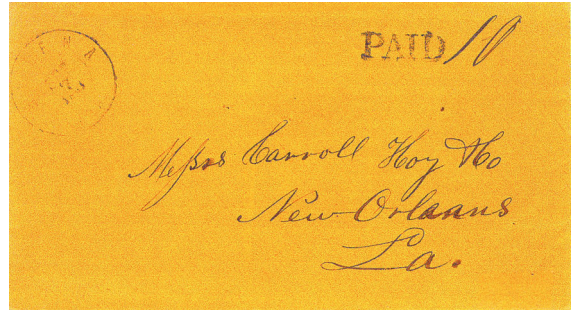 PAID 10
Messrs Carroll Hoy & Co
New Orleans
La.